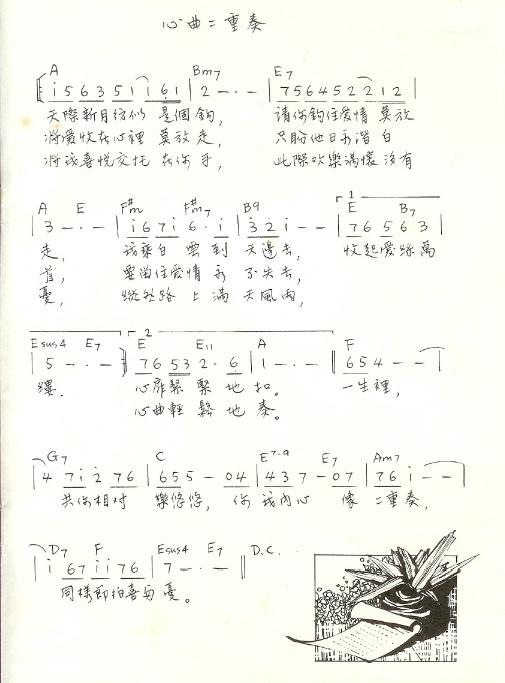 心曲二重奏
A Bm7 E7
i 5 6 3 5 1 i 6 1 | 2 - · - | 7 5 6 4 5 2 2 1 2 |
天際新月彷似 是個鈎, 請你鈎住愛情 莫放
將愛收在心裡 莫放走, 只盼他日永諧白
將我喜悅交托 在你手, 此際歡樂滿懷沒有
A E F#m F#m7 B9 E B7
3 - · - | i 6 7 i 6 · i | 3 2 i - - | 1 7 6 5 6 3 |
走, 我乘白雲到 天邊去, 收起愛絲萬
首, 要留住愛情永 不失去,
憂, 縱然路上滿 天風雨,
Esus4 E7 E E11 A F
5 - · - | 2 7 6 5 3 2 · 6 | 1 - · - | 6 5 4 - - |
縷. 心扉緊緊地扣。 一生裡,
心曲輕鬆地奏。
G7 C E7-9 E7 Am7
4 7 i 2 7 6 | 6 5 5 - 0 4 | 4 3 7 - 0 7 | 7 6 i - - |
共你相對 樂悠悠, 你我內心 像 二重奏,
D7 F Esus4 E7 D.C.
i 6 7 i i 7 6 | 7 - · - ‖
同樣節拍喜與憂。